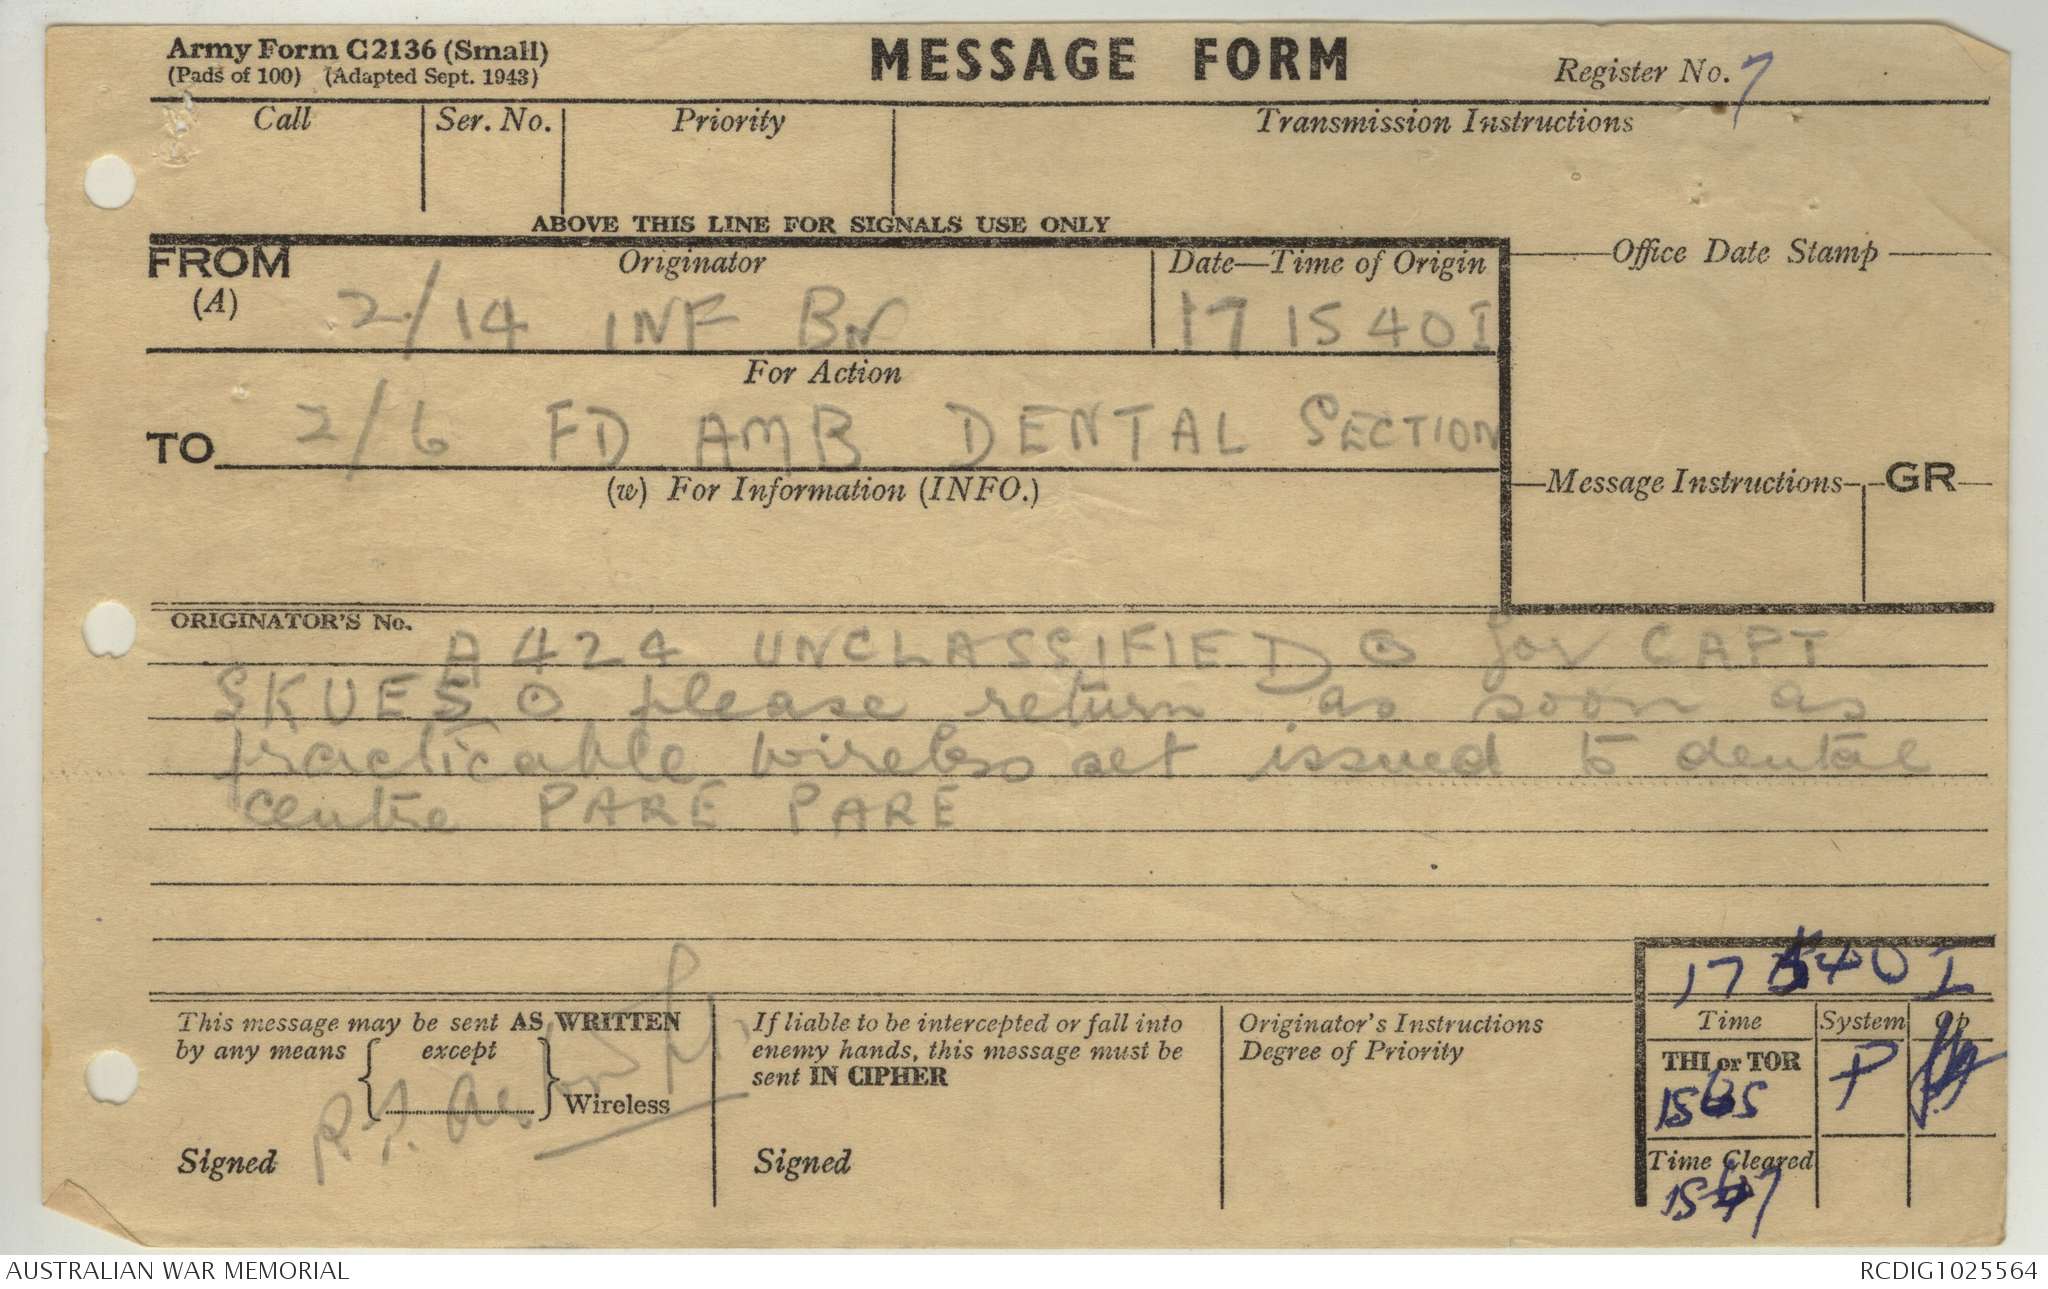 Army Form C2136 (Small)
(Pads of 100) (Adapted Sept. 1943)
MESSAGE FORM
Register No. 7
Call
Ser. No.
Priority
Transmission Instructions
ABOVE THIS LINE FOR SIGNALS USE ONLY
FROM
(A)
Originator
2/14 INF BN
Date—Time of Origin
171540I
Office Date Stamp
For Action
TO
2/6 FD AMB DENTAL SECTION
(w) For Information (INFO.)
Message Instructions
GR
ORIGINATOR'S No.
A424 UNCLASSIFIED ⊙ for CAPT
SKUES ⊙ please return as soon as
practicable wireless set issued to dental
centre PARE PARE
17 1540 I
This message may be sent AS WRITTEN
by any means { except } Wireless
Signed
If liable to be intercepted or fall into
enemy hands, this message must be
sent IN CIPHER
Signed
Originator's Instructions
Degree of Priority
Time
System
Op
THI or TOR
P
Time Cleared
AUSTRALIAN WAR MEMORIAL
RCDIG1025564